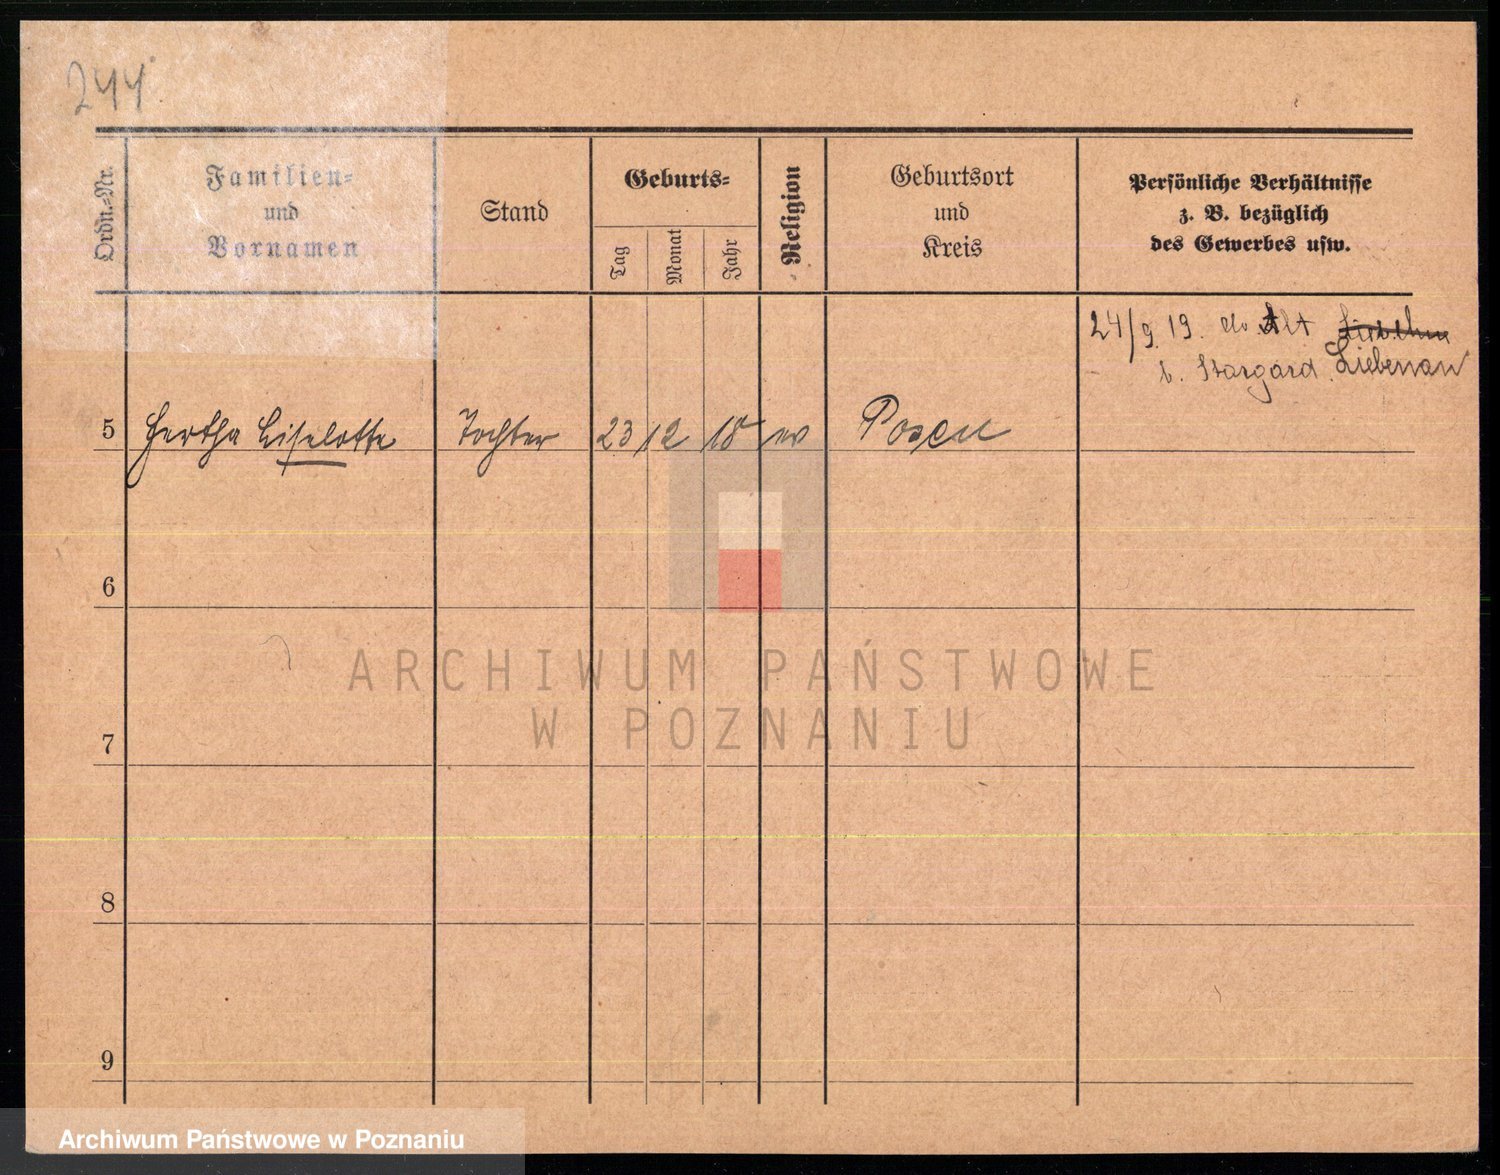 244
Ordn.-Nr.
Familien-
und
Vornamen
Stand
Geburts-
Tag
Monat
Jahr
Religion
Geburtsort
und
Kreis
Persönliche Verhältnisse
z. B. bezüglich
des Gewerbes usw.
24/9 19. do Alt
b. Stargard. Liebenau
5 Hertha Liselotte Tochter 23 12 18 ev Posen
6
ARCHIWUM PAŃSTWOWE
W POZNANIU
7
8
9
Archiwum Państwowe w Poznaniu